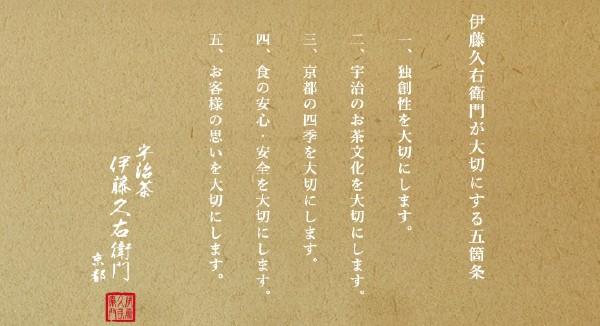 伊藤久右衛門が大切にする五箇条
一、独創性を大切にします。
二、宇治のお茶文化を大切にします。
三、京都の四季を大切にします。
四、食の安心・安全を大切にします。
五、お客様の思いを大切にします。
宇治茶
伊藤久右衛門
京都